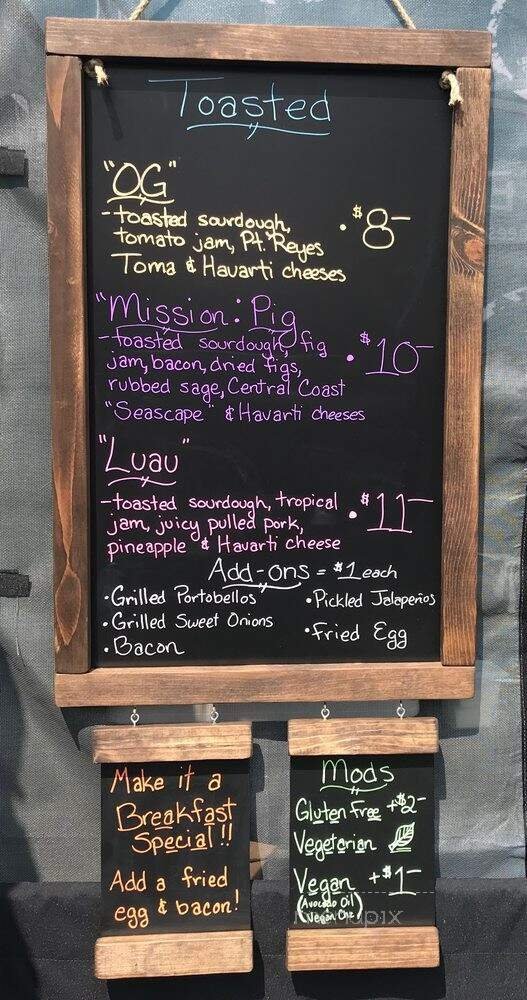 Toasted
"OG"
-toasted sourdough,
tomato jam, Pt. Reyes
Toma & Havarti cheeses
• $8-
"Mission: Pig
-toasted sourdough, fig
jam, bacon, dried figs,
rubbed sage, Central Coast
"Seascape" & Havarti cheeses
• $10-
"Luau"
-toasted sourdough, tropical
jam, juicy pulled pork,
pineapple & Havarti cheese
• $11-
Add-ons = $1 each
• Grilled Portobellos
• Grilled Sweet Onions
• Bacon
• Pickled Jalapeños
• Fried Egg
Make it a
Breakfast
Special!!
Add a fried
egg & bacon!
Mods
Gluten Free +$2-
Vegetarian
Vegan +$1-
(Avocado Oil
Vegan